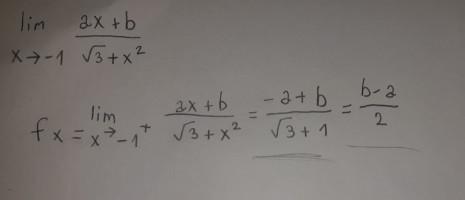 lim x→-1 (ax+b)/(√3+x²)
fx = lim x→-1⁺ (ax+b)/(√3+x²) = (-a+b)/(√3+1) = (b-a)/2